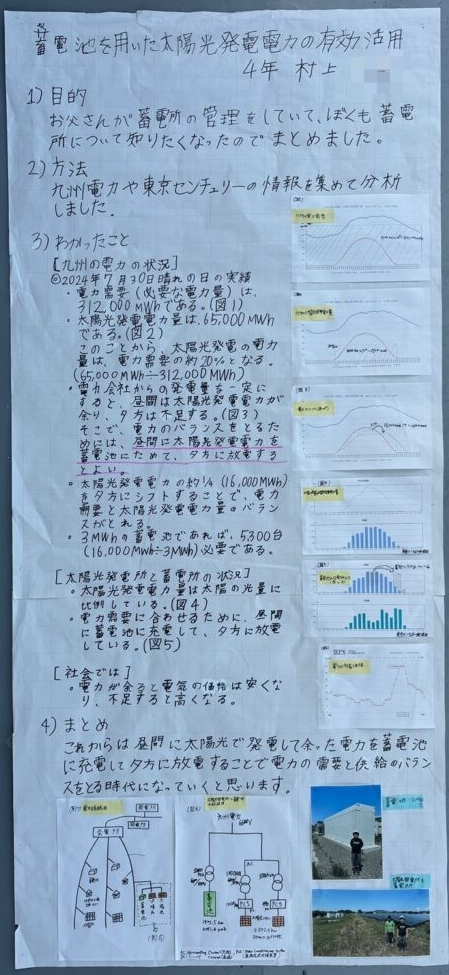 蓄電池を用いた太陽光発電電力の有効活用
4年 村上
1) 目的
お父さんが蓄電所の管理をしていて、ぼくも蓄電
所について知りたくなったのでまとめました。
2) 方法
九州電力や東京センチュリーの情報を集めて分析
しました。
3) わかったこと
[九州の電力の状況]
◎2024年7月30日晴れの日の実績
・電力需要(必要な電力量)は、
312,000MWhである。(図1)
・太陽光発電電力量は、65,000MWh
である。(図2)
このことから、太陽光発電の電力
量は、電力需要の約20%となる。
(65,000MWh÷312,000MWh)
・電力会社からの発電量を一定に
すると、昼間は太陽光発電電力が
余り、夕方は不足する。(図3)
そこで、電力のバランスをとるた
めには、昼間に太陽光発電電力を
蓄電池にためて、夕方に放電する
とよい。
・太陽光発電電力の約1/4(16,000MWh)
を夕方にシフトすることで、電力
需要と太陽光発電電力量のバラン
スがとれる。
・3MWhの蓄電池であれば、5,300台
(16,000MWh÷3MWh)必要である。
[太陽光発電所と蓄電所の状況]
・太陽光発電電力量は太陽の光量に
比例している。(図4)
・電力需要に合わせるために、昼間
に蓄電池に充電して、夕方に放電
している。(図5)
[社会では]
・電力が余ると電気の価格は安くな
り、不足すると高くなる。
4) まとめ
これからは昼間に太陽光で発電して余った電力を蓄電池
に充電して夕方に放電することで電力の需要と供給のバラン
スをとる時代になっていくと思います。
九州電力
AC
PCS
PCS
蓄電池